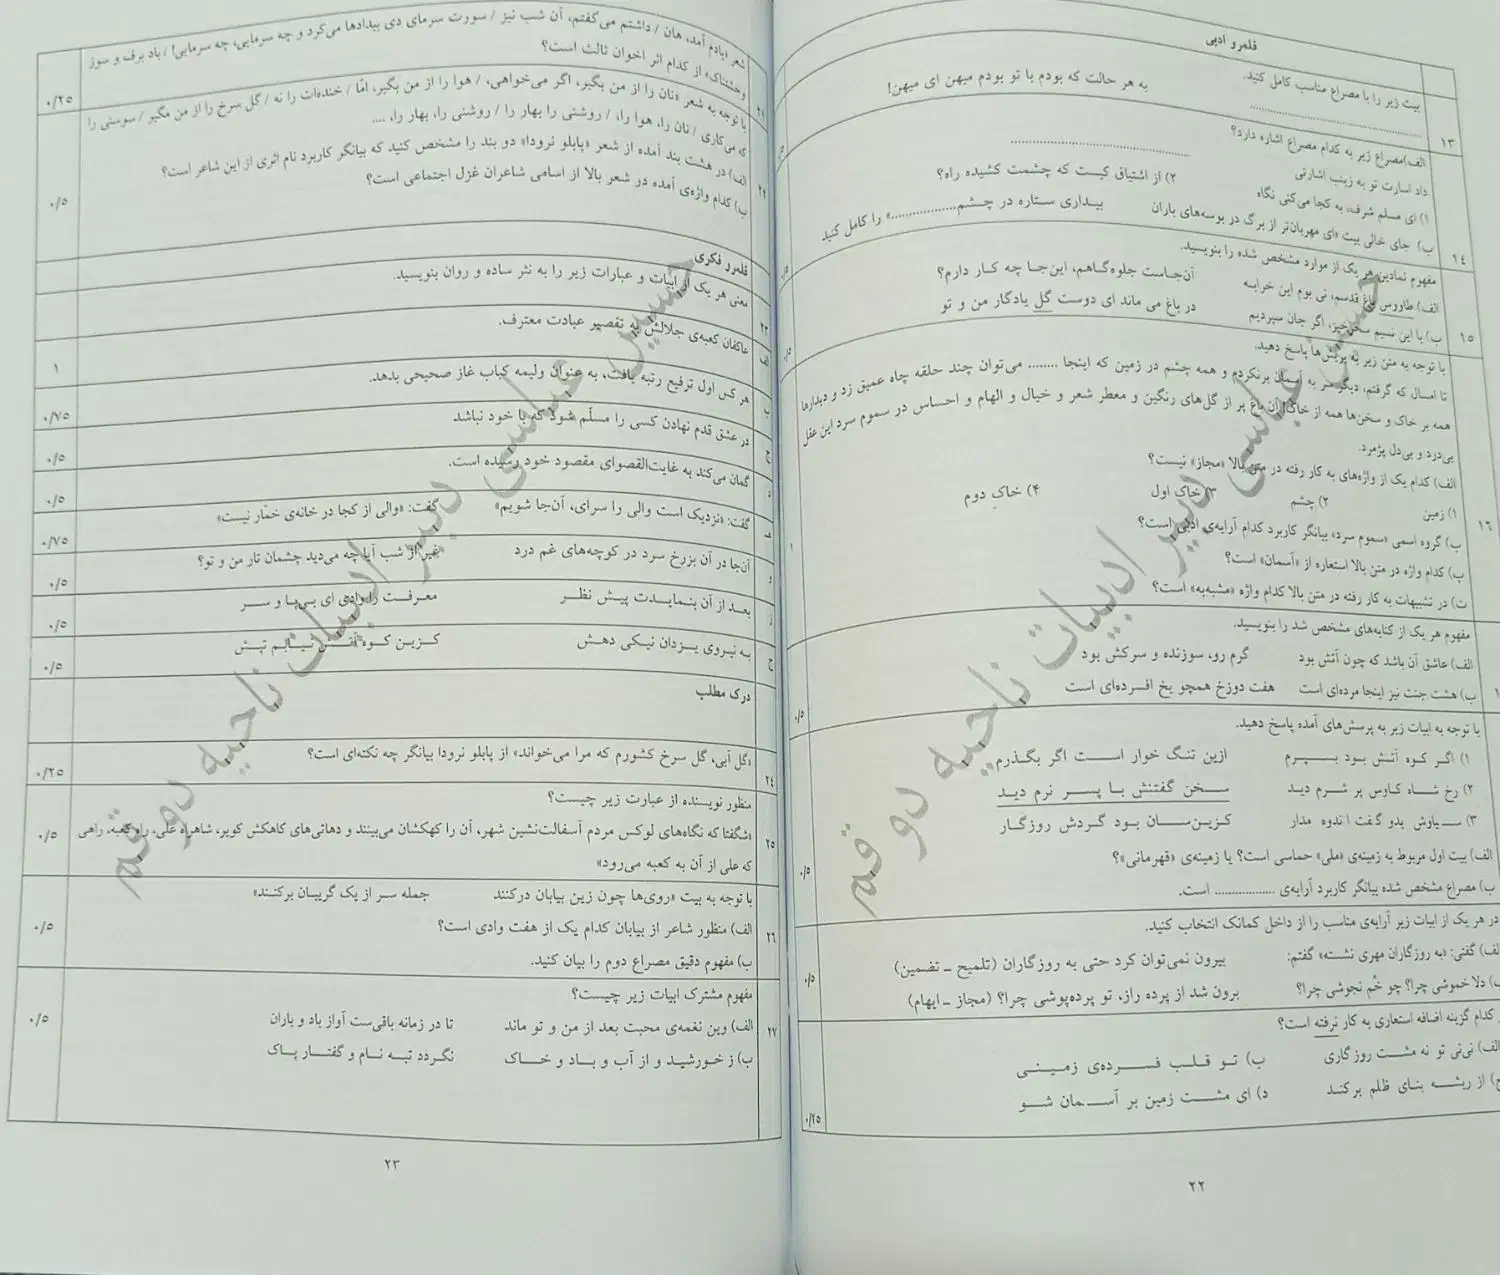 قلمرو ادبی
بیت زیر را با مصراع مناسب کامل کنید.
۱۳
............................................ به هر حالت که بودم با تو بودم میهن ای میهن!
الف)مصراع زیر به کدام مصراع اشاره دارد؟
داد اسارت تو به زینب اشارتی ............................................
۱) ای مسلم شرف، به کجا می‌کنی نگاه ۲) از اشتیاق کیست که چشمت کشیده راه؟
ب) جای خالی بیت «ای مهربان‌تر از برگ در بوسه‌های باران بیداری ستاره در چشم.................» را کامل کنید
۱۴
مفهوم نمادین هر یک از موارد مشخص شده را بنویسید.
الف) طاووس باغ قدسم، نی بوم این خرابه آن‌جاست جلوه‌گاهم، این‌جا چه کار دارم؟
ب) با این نسیم سحرخیز، اگر جان سپردیم در باغ می ماند ای دوست گل یادگار من و تو
۱۵
۰/۵
با توجه به متن زیر به پرسش‌ها پاسخ دهید.
تا امسال که گرفتم، دیگر سر به آسمان برنکردم و همه چشم در زمین که اینجا ........ می‌توان چند حلقه چاه عمیق زد و دیدارها
همه بر خاک و سخن‌ها همه از خاک! آن باغ پر از گل‌های رنگین و معطر شعر و خیال و الهام و احساس در سموم سرد این عقل
بی‌درد و بی‌دل پژمرد.
الف) کدام یک از واژه‌های به کار رفته در متن بالا «مجاز» نیست؟
۱) زمین ۲) چشم ۳) خاک اول ۴) خاکِ دوم
۱۶
ب) گروه اسمی «سموم سرد» بیانگر کاربرد کدام آرایه‌ی ادبی است؟
پ) کدام واژه در متن بالا استعاره از «آسمان» است؟
ت) در تشبیهات به کار رفته در متن بالا کدام واژه «مشبه‌به» است؟
۱
مفهوم هر یک از کنایه‌های مشخص شد را بنویسید.
الف) عاشق آن باشد که چون آتش بود گرم رو، سوزنده و سرکش بود
ب) هشت جنت نیز اینجا مرده‌ای است هفت دوزخ همچو یخ افسرده‌ای است
۰/۵
با توجه به ابیات زیر به پرسش‌های آمده پاسخ دهید.
۱) اگر کوه آتش بود بسپرم ازین تنگ خوار است اگر بگذرم
۲) رخ شاه کاوس پر شرم دید سخن گفتنش با پسر نرم دید
۳) سیاوش بدو گفت اندوه مدار کزین‌سان بود گردش روزگار
الف) بیت اول مربوط به زمینه‌ی «ملی» حماسی است؟ یا زمینه‌ی «قهرمانی»؟
ب) مصراع مشخص شده بیانگر کاربرد آرایه‌ی ................ است.
۰/۵
در هر یک از ابیات زیر آرایه‌ی مناسب را از داخل کمانک انتخاب کنید.
الف) گفتی: «به روزگاران مهری نشسته» گفتم: بیرون نمی‌توان کرد حتی به روزگاران (تلمیح ـ تضمین)
ب) دلا خموشی چرا؟ چو خُم نجوشی چرا؟ برون شد از پرده راز، تو پرده‌پوشی چرا؟ (مجاز ـ ایهام)
۰/۵
کدام گزینه اضافه استعاری به کار نرفته است؟
الف) نی‌نی تو نه مشت روزگاری ب) تو قلب فسرده‌ی زمینی
ج) از ریشه بنای ظلم برکند د) ای مشت زمین بر آسمان شو
۰/۲۵
۲۲
شعر «یادم آمد، هان / داشتم می‌گفتم، آن شب نیز / سورت سرمای دی بیدادها می‌کرد و چه سرمایی، چه سرمایی! / باد برف و سوز
وحشتناک» از کدام اثر اخوان ثالث است؟
۰/۲۵
۲۱
با توجه به شعر «نان را از من بگیر، اگر می‌خواهی، / هوا را از من بگیر، امّا / خنده‌ات را نه / گل سرخ را از من مگیر / سوسنی را
که می‌کاری / نان را، هوا را، / روشنی را بهار را / روشنی را، بهار را، ....
الف) در هشت بند آمده از شعر «پابلو نرودا» دو بند را مشخص کنید که بیانگر کاربرد نام اثری از این شاعر است؟
۲۲
ب) کدام واژه‌ی آمده در شعر بالا از اسامی شاعران غزل اجتماعی است؟
۰/۵
قلمرو فکری
معنی هر یک از ابیات و عبارات زیر را به نثر ساده و روان بنویسید.
۲۳
الف عاکفان کعبه‌ی جلالش به تقصیر عبادت معترف.
۱
ب هر کس اول ترفیع رتبه یافت، به عنوان ولیمه کباب غاز صحیحی بدهد.
۰/۷۵
ج در عشق قدم نهادن کسی را مسلّم شود که با خود نباشد
۰/۵
د گمان می‌کند به غایت‌القصوای مقصود خود رسیده است.
۰/۵
ه گفت: «نزدیک است والی را سرای، آن‌جا شویم» گفت: «والی از کجا در خانه‌ی خمّار نیست»
۰/۷۵
و آن‌جا در آن برزخ سرد در کوچه‌های غم درد غیر از شب آیا چه می‌دید چشمان تار من و تو؟
۰/۵
ز بعد از آن بنمایدت پیش نظر معرفت را وادی ای بی‌پا و سر
۰/۵
ح به نیروی یزدان نیکی دهش کزین کوه آتش نیابم تپش
۰/۵
درک مطلب
«گل آبی، گل سرخ کشورم که مرا می‌خواند» از پابلو نرودا بیانگر چه نکته‌ای است؟
۲۴
۰/۲۵
منظور نویسنده از عبارت زیر چیست؟
«شگفتا که نگاه‌های لوکس مردم آسفالت‌نشین شهر، آن را کهکشان می‌بینند و دهاتی‌های کاهکش کویر، شاهراه علی، راه کعبه، راهی
۲۵
۰/۵
که علی از آن به کعبه می‌رود»
با توجه به بیت «روی‌ها چون زین بیابان درکنند جمله سر از یک گریبان برکنند»
الف) منظور شاعر از بیابان کدام یک از هفت وادی است؟
۲۶
۰/۵
ب) مفهوم دقیق مصراع دوم را بیان کنید.
مفهوم مشترک ابیات زیر چیست؟
الف) وین نغمه‌ی محبت بعد از من و تو ماند تا در زمانه باقی‌ست آواز باد و باران
۲۷
۰/۵
ب) ز خورشید و از آب و باد و خاک نگردد تبه نام و گفتار پاک
۲۳
حسین عباسی دبیر ادبیات ناحیه دو قم
حسین عباسی دبیر ادبیات ناحیه دو قم